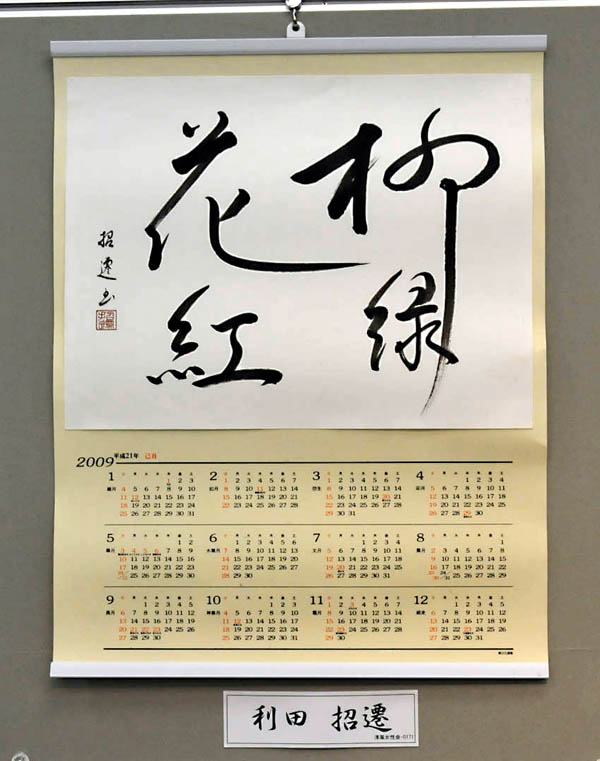 柳緑
花紅
招遷書
2009 平成21年 己丑
1
1 2 3
4 5 6 7 8 9 10
11 12 13 14 15 16 17
18 19 20 21 22 23 24
25 26 27 28 29 30 31
2 如月
1 2 3 4 5 6 7
8 9 10 11 12 13 14
15 16 17 18 19 20 21
22 23 24 25 26 27 28
3 弥生
1 2 3 4 5 6 7
8 9 10 11 12 13 14
15 16 17 18 19 20 21
22 23 24 25 26 27 28
29 30 31
4 卯月
1 2 3 4
5 6 7 8 9 10 11
12 13 14 15 16 17 18
19 20 21 22 23 24 25
26 27 28 29 30
5
1 2
3 4 5 6 7 8 9
10 11 12 13 14 15 16
17 18 19 20 21 22 23
24/31 25 26 27 28 29 30
6 水無月
1 2 3 4 5 6
7 8 9 10 11 12 13
14 15 16 17 18 19 20
21 22 23 24 25 26 27
28 29 30
7 文月
1 2 3 4
5 6 7 8 9 10 11
12 13 14 15 16 17 18
19 20 21 22 23 24 25
26 27 28 29 30 31
8 葉月
1
2 3 4 5 6 7 8
9 10 11 12 13 14 15
16 17 18 19 20 21 22
23/30 24/31 25 26 27 28 29
9
1 2 3 4 5
6 7 8 9 10 11 12
13 14 15 16 17 18 19
20 21 22 23 24 25 26
27 28 29 30
10 神無月
1 2 3
4 5 6 7 8 9 10
11 12 13 14 15 16 17
18 19 20 21 22 23 24
25 26 27 28 29 30 31
11 霜月
1 2 3 4 5 6 7
8 9 10 11 12 13 14
15 16 17 18 19 20 21
22 23 24 25 26 27 28
29 30
12
1 2 3 4 5
6 7 8 9 10 11 12
13 14 15 16 17 18 19
20 21 22 23 24 25 26
27 28 29 30 31
利田 招遷